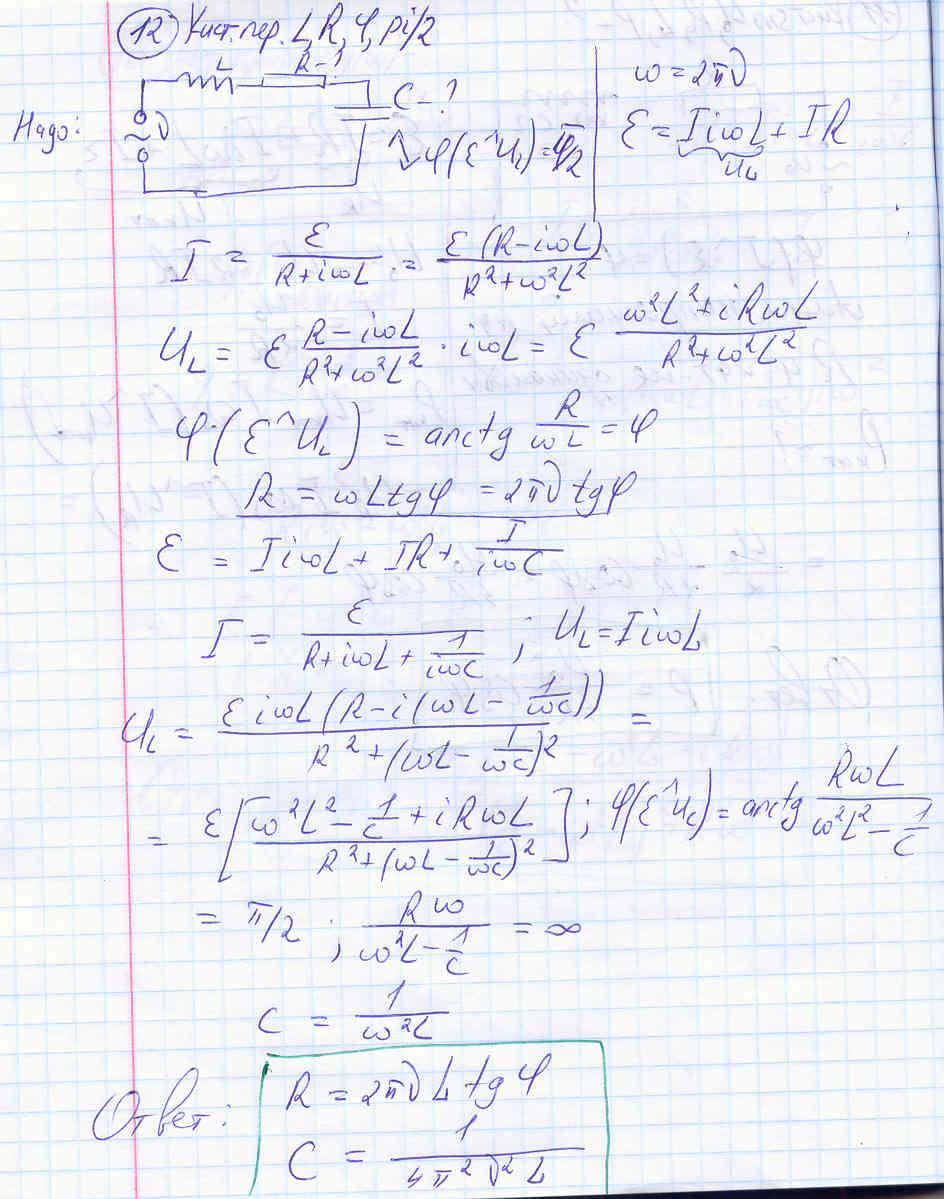 12 Уист. пер. L, R, φ, pi/2
L R-?
Надо: ~ν C-? φ(ℰ^U_L) = π/2
ω = 2πν
ℰ = IiωL + IR
U_L
I = ℰ/(R+iωL) = ℰ(R-iωL)/(R²+ω²L²)
U_L = ℰ (R-iωL)/(R²+ω²L²) · iωL = ℰ (ω²L²+iRωL)/(R²+ω²L²)
φ(ℰ^U_L) = arctg R/(ωL) = φ
R = ωL tgφ = 2πν tgφ
ℰ = IiωL + IR + I/(iωC)
I = ℰ/(R+iωL+1/(iωC)) ; U_L = IiωL
U_L = ℰiωL(R-i(ωL-1/(ωC)))/(R²+(ωL-1/(ωC))²) =
= ℰ[(ω²L²-L/C+iRωL)/(R²+(ωL-1/(ωC))²)] ; φ(ℰ^U_L) = arctg RωL/(ω²L²-L/C)
= π/2 ; Rω/(ω²L-1/C) = ∞
C = 1/(ω²L)
Ответ: R = 2πνL tgφ
C = 1/(4π²ν²L)